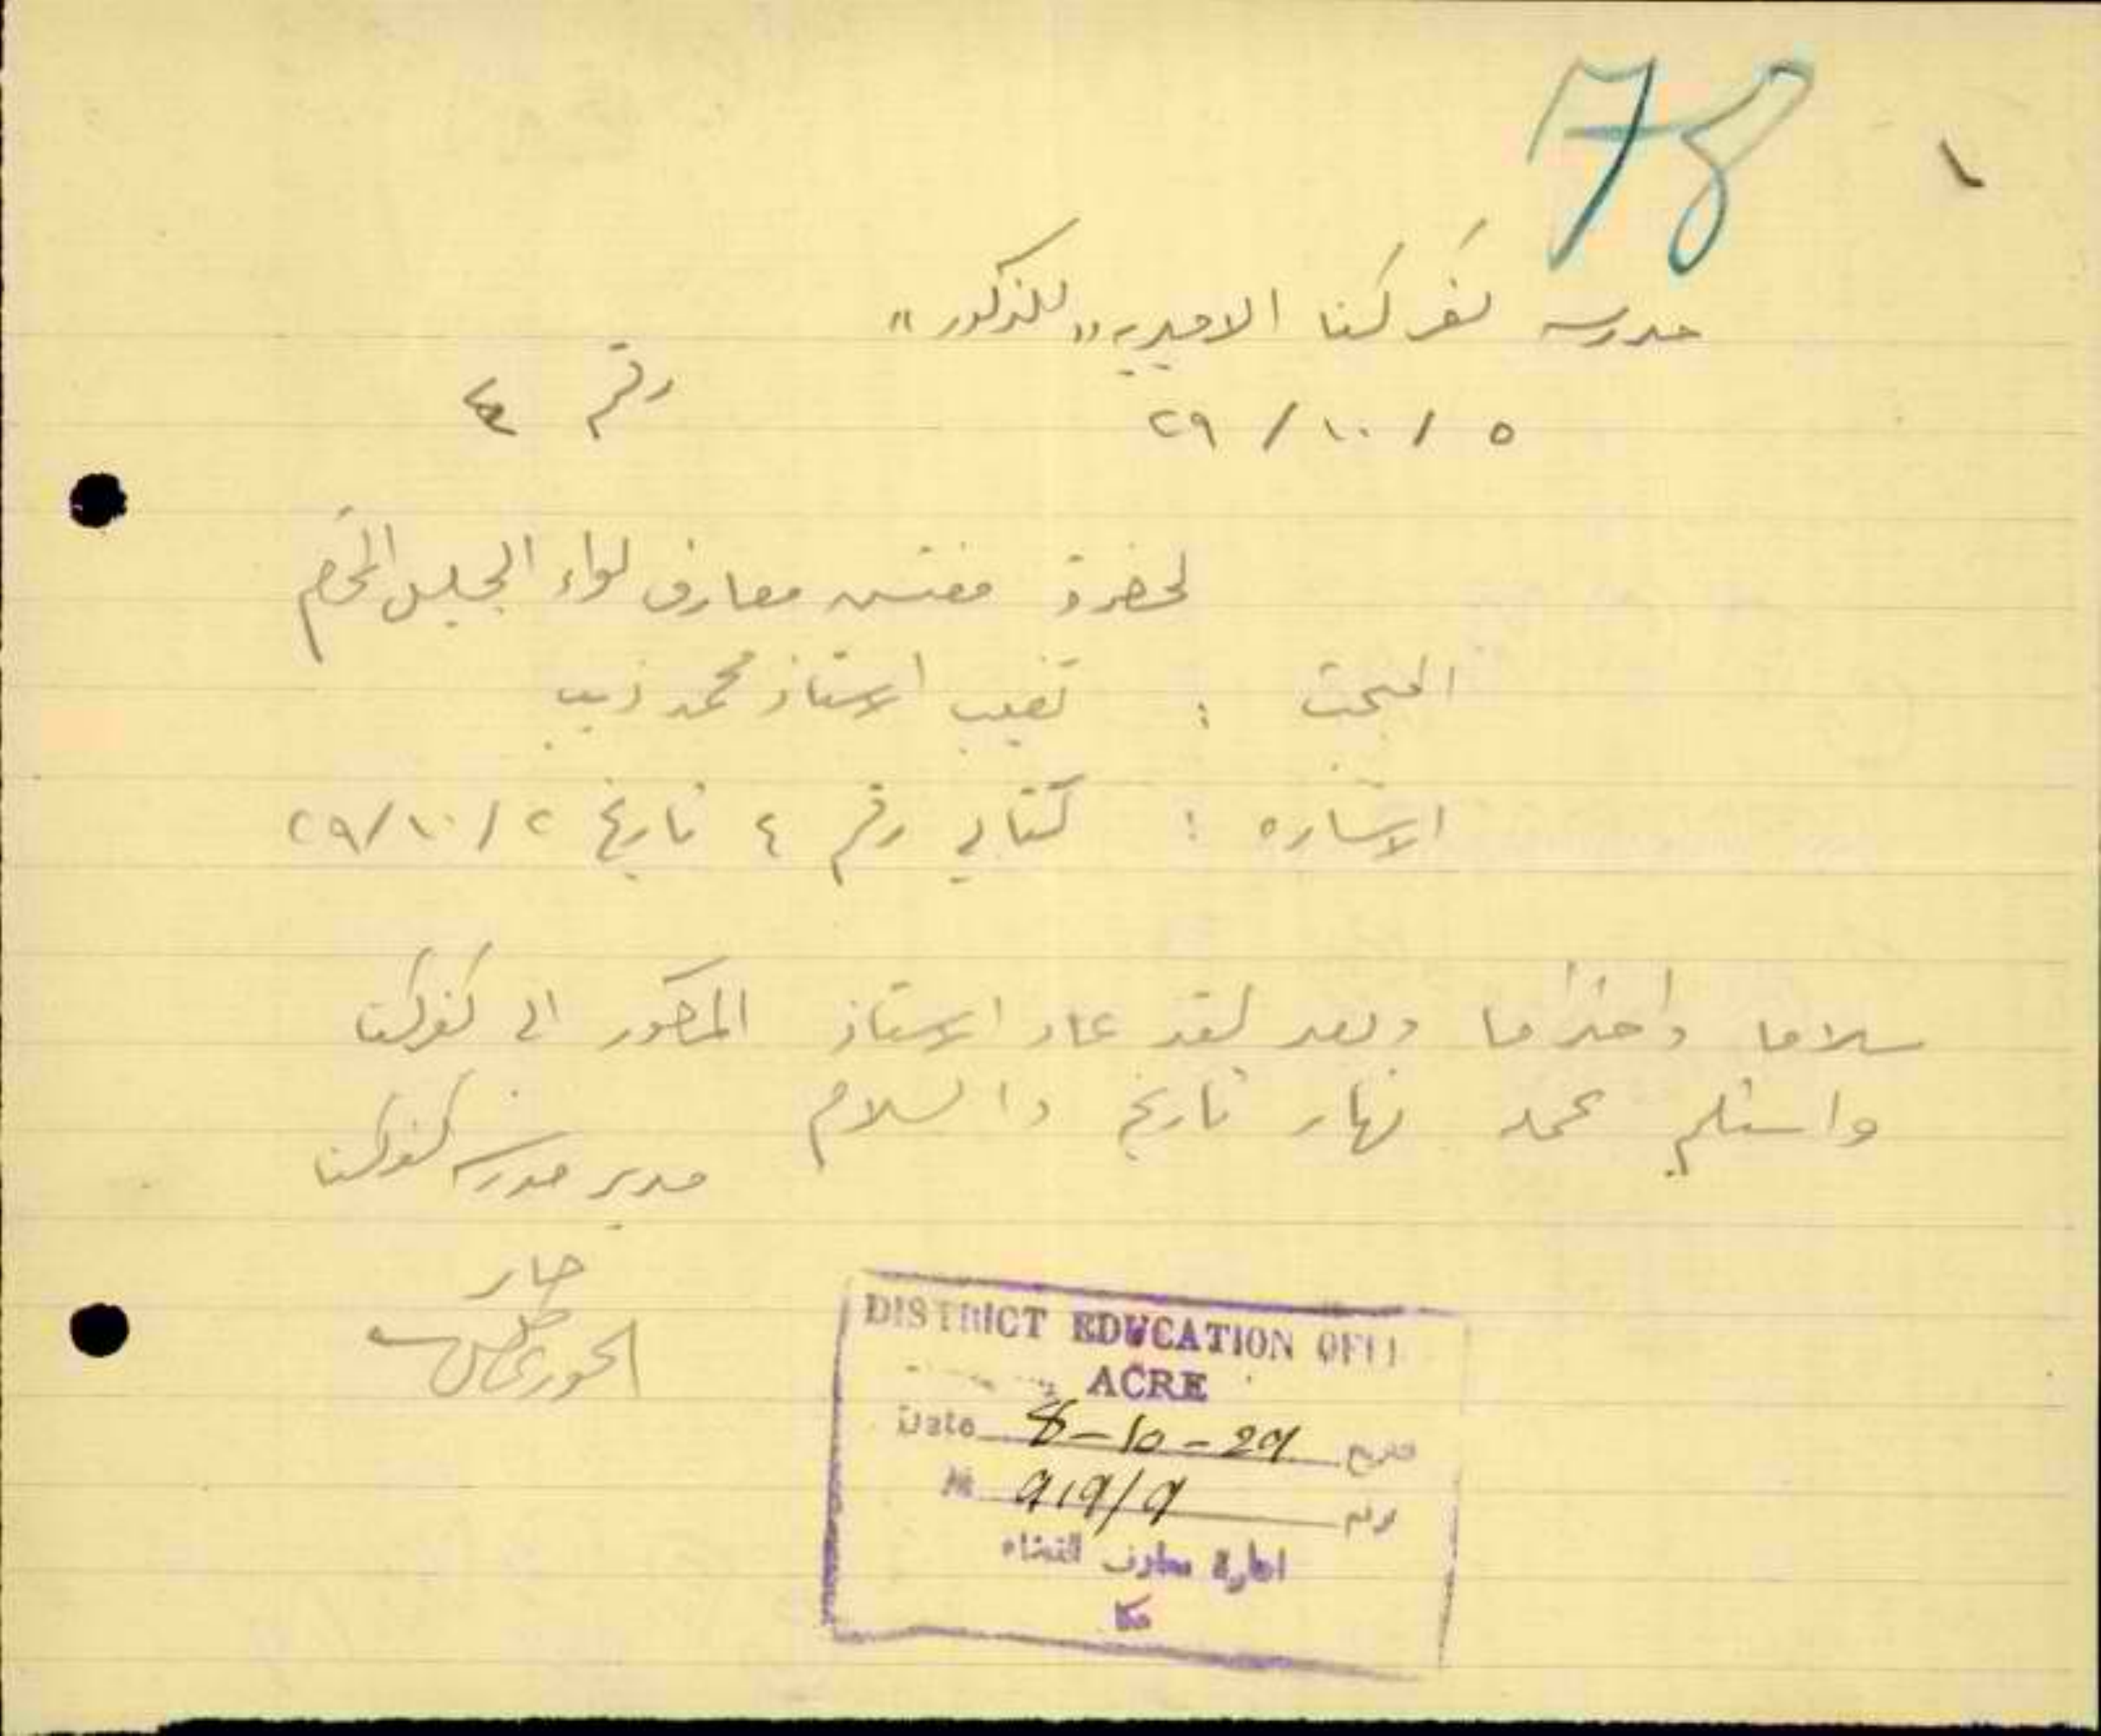 78
مدرسه كفركنا الاميريه "للذكور"
٥ / ١٠ / ٢٩ رقم ٤
لحضرة مفتش معارف لواء الجليل المحترم
المبحث : تغيب الاستاذ محمد ذيب
الاشاره : كتابي رقم ٤ تاريخ ٢ / ١٠ / ٢٩
سلاما واحتراما وبعد لقد عاد الاستاذ المذكور الى كفركنا
واستلم عمله نهار تاريخ والسلام
مدير مدرسه كفركنا
الخوري
DISTRICT EDUCATION OFFI
ACRE
Date 8-10-29 تاريخ
№ 919/9 نومرو
ادارة معارف القضاء
عكا